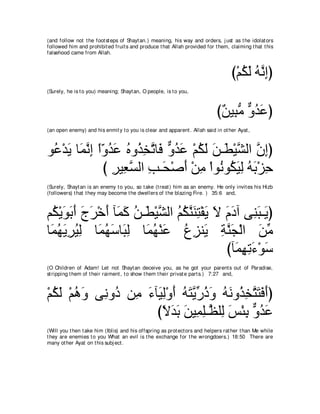 (and follow not the footsteps of Shaytan.) meaning, his way and orders, just as the idolators
followed him and prohibited fruits and produce that Allah provided for them, claiming that this
falsehood came from Allah.
(إِنَّهُ لَكُمْ)
(Surely, he is to you) meaning; Shaytan, O people, is to you,
(عَدُوٌّ مُّبِينٌ)
(an open enemy) and his enmity to you is clear and apparent. Allah said in other Ayat,
(إِنَّ الشَّيْطَـنَ لَكُمْ عَدُوٌّ فَاتَّخِذُوهُ عَدُوّاً إِنَّمَا يَدْعُو
حِزْبَهُ لِيَكُونُواْ مِنْ أَصْحَـبِ السَّعِيرِ )
(Surely, Shaytan is an enemy to you, so take (treat) him as an enemy. He only invites his Hizb
(followers) that they may become the dwellers of the blazing Fire. ) 35:6 and,
(يَـبَنِي آدَمَ لاَ يَفْتِنَنَّكُمُ الشَّيْطَـنُ كَمَآ أَخْرَجَ أَبَوَيْكُم
مِّنَ الْجَنَّةِ يَنزِعُ عَنْهُمَا لِبَاسَهُمَا لِيُرِيَهُمَا
سَوْءَتِهِمَآ)
(O Children of Adam! Let not Shaytan deceive you, as he got your parents out of Paradise,
stripping them of their raiment, to show them their private parts.) 7:27 and,
(أَفَتَتَّخِذُونَهُ وَذُرِّيَّتَهُ أَوْلِيَآءَ مِن دُونِى وَهُمْ لَكُمْ
عَدُوٌّ بِئْسَ لِلظَّـلِمِينَ بَدَلاً)
(Will you then take him (Iblis) and his offspring as protectors and helpers rather than Me while
they are enemies to you What an evil is the exchange for the wrongdoers.) 18:50 There are
many other Ayat on this subject.